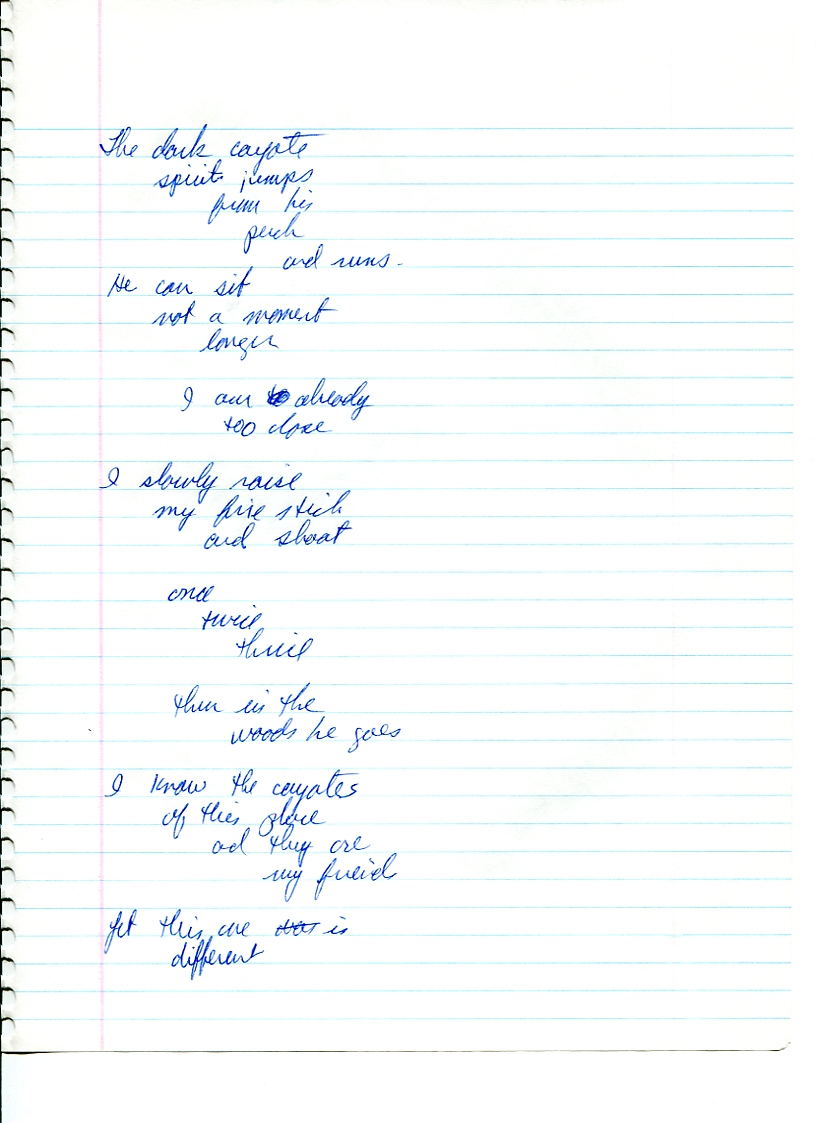 The dark coyote
spirit jumps
from his
perch
and runs.
He can sit
not a moment
longer
I am already
too close
I slowly raise
my fire stick
and shoot
once
twice
thrice
then in the
woods he goes
I know the coyotes
of this place
and they are
my friends
yet this one is
different